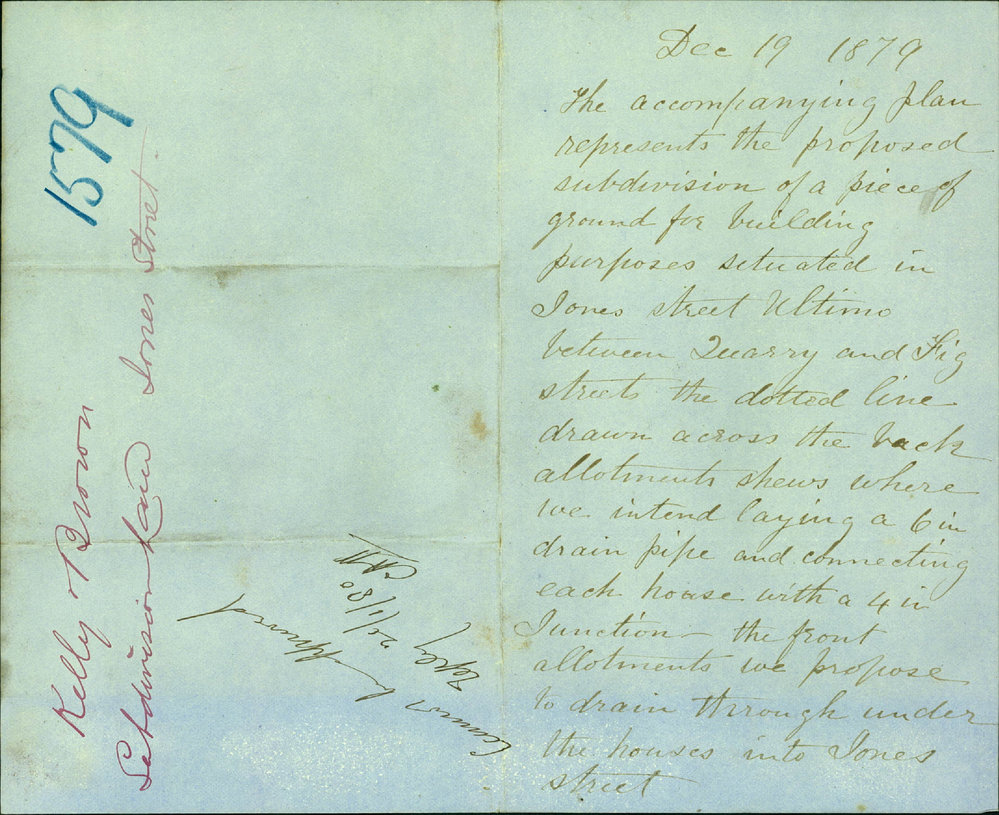 1579
Kelly & Brown
Subdivision Land Jones Street
Cannot be Approved
Reply 21/1/80
Dec 19 1879
The accompanying plan
represents the proposed
subdivision of a piece of
ground for building
purposes situated in
Jones street Ultimo
between Quarry and Fig
streets the dotted line
drawn across the back
allotments shews where
we intend laying a 6 in
drain pipe and connecting
each house with a 4 in
Junction - the front
allotments we propose
to drain through under
the houses into Jones
street